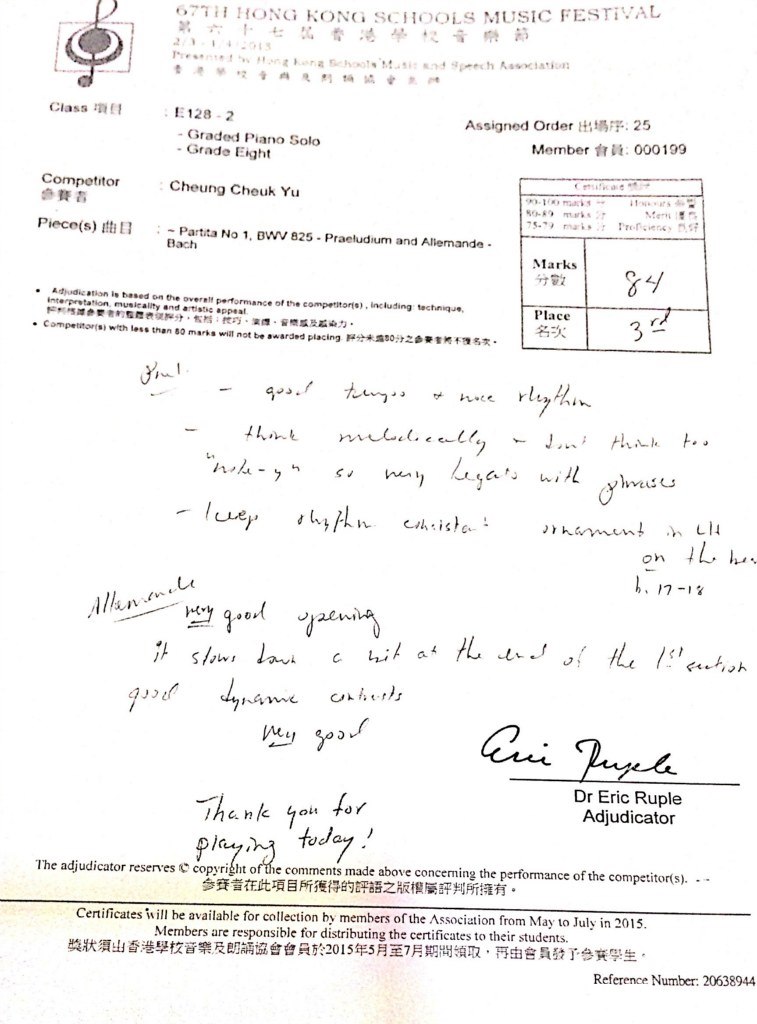 67TH HONG KONG SCHOOLS MUSIC FESTIVAL
第六十七屆香港學校音樂節
2/3 - 1/4/2015
Presented by Hong Kong Schools Music and Speech Association
香港學校音樂及朗誦協會主辦
Class 項目 : E128 - 2
- Graded Piano Solo
- Grade Eight
Assigned Order 出場序: 25
Member 會員: 000199
Competitor 參賽者 : Cheung Cheuk Yu
Piece(s) 曲目 : ~ Partita No 1, BWV 825 - Praeludium and Allemande -
Bach
Certificate
90-100 marks 分 Honours
80-89 marks 分 Merit
75-79 marks 分 Proficiency 良好
Marks 分數 84
Place 名次 3rd
• Adjudication is based on the overall performance of the competitor(s), including: technique,
interpretation, musicality and artistic appeal.
評判根據參賽者的整體表現評分，包括：技巧、演繹、音樂感及感染力。
• Competitor(s) with less than 80 marks will not be awarded placing. 評分未達80分之參賽者將不獲名次。
- good tempo + nice rhythm
- think melodically - don't think too
"note-y" so very legato with phrases
- keep rhythm consistant ornament in LH
on the
b. 17-18
Allemande
very good opening
it slows down a bit at the end of the 1st section
good dynamic contrasts
very good
Eric Ruple
Dr Eric Ruple
Adjudicator
Thank you for
playing today!
The adjudicator reserves © copyright of the comments made above concerning the performance of the competitor(s).
參賽者在此項目所獲得的評語之版權屬評判所擁有。
Certificates will be available for collection by members of the Association from May to July in 2015.
Members are responsible for distributing the certificates to their students.
獎狀須由香港學校音樂及朗誦協會會員於2015年5月至7月期間領取，再由會員發予參賽學生。
Reference Number: 20638944